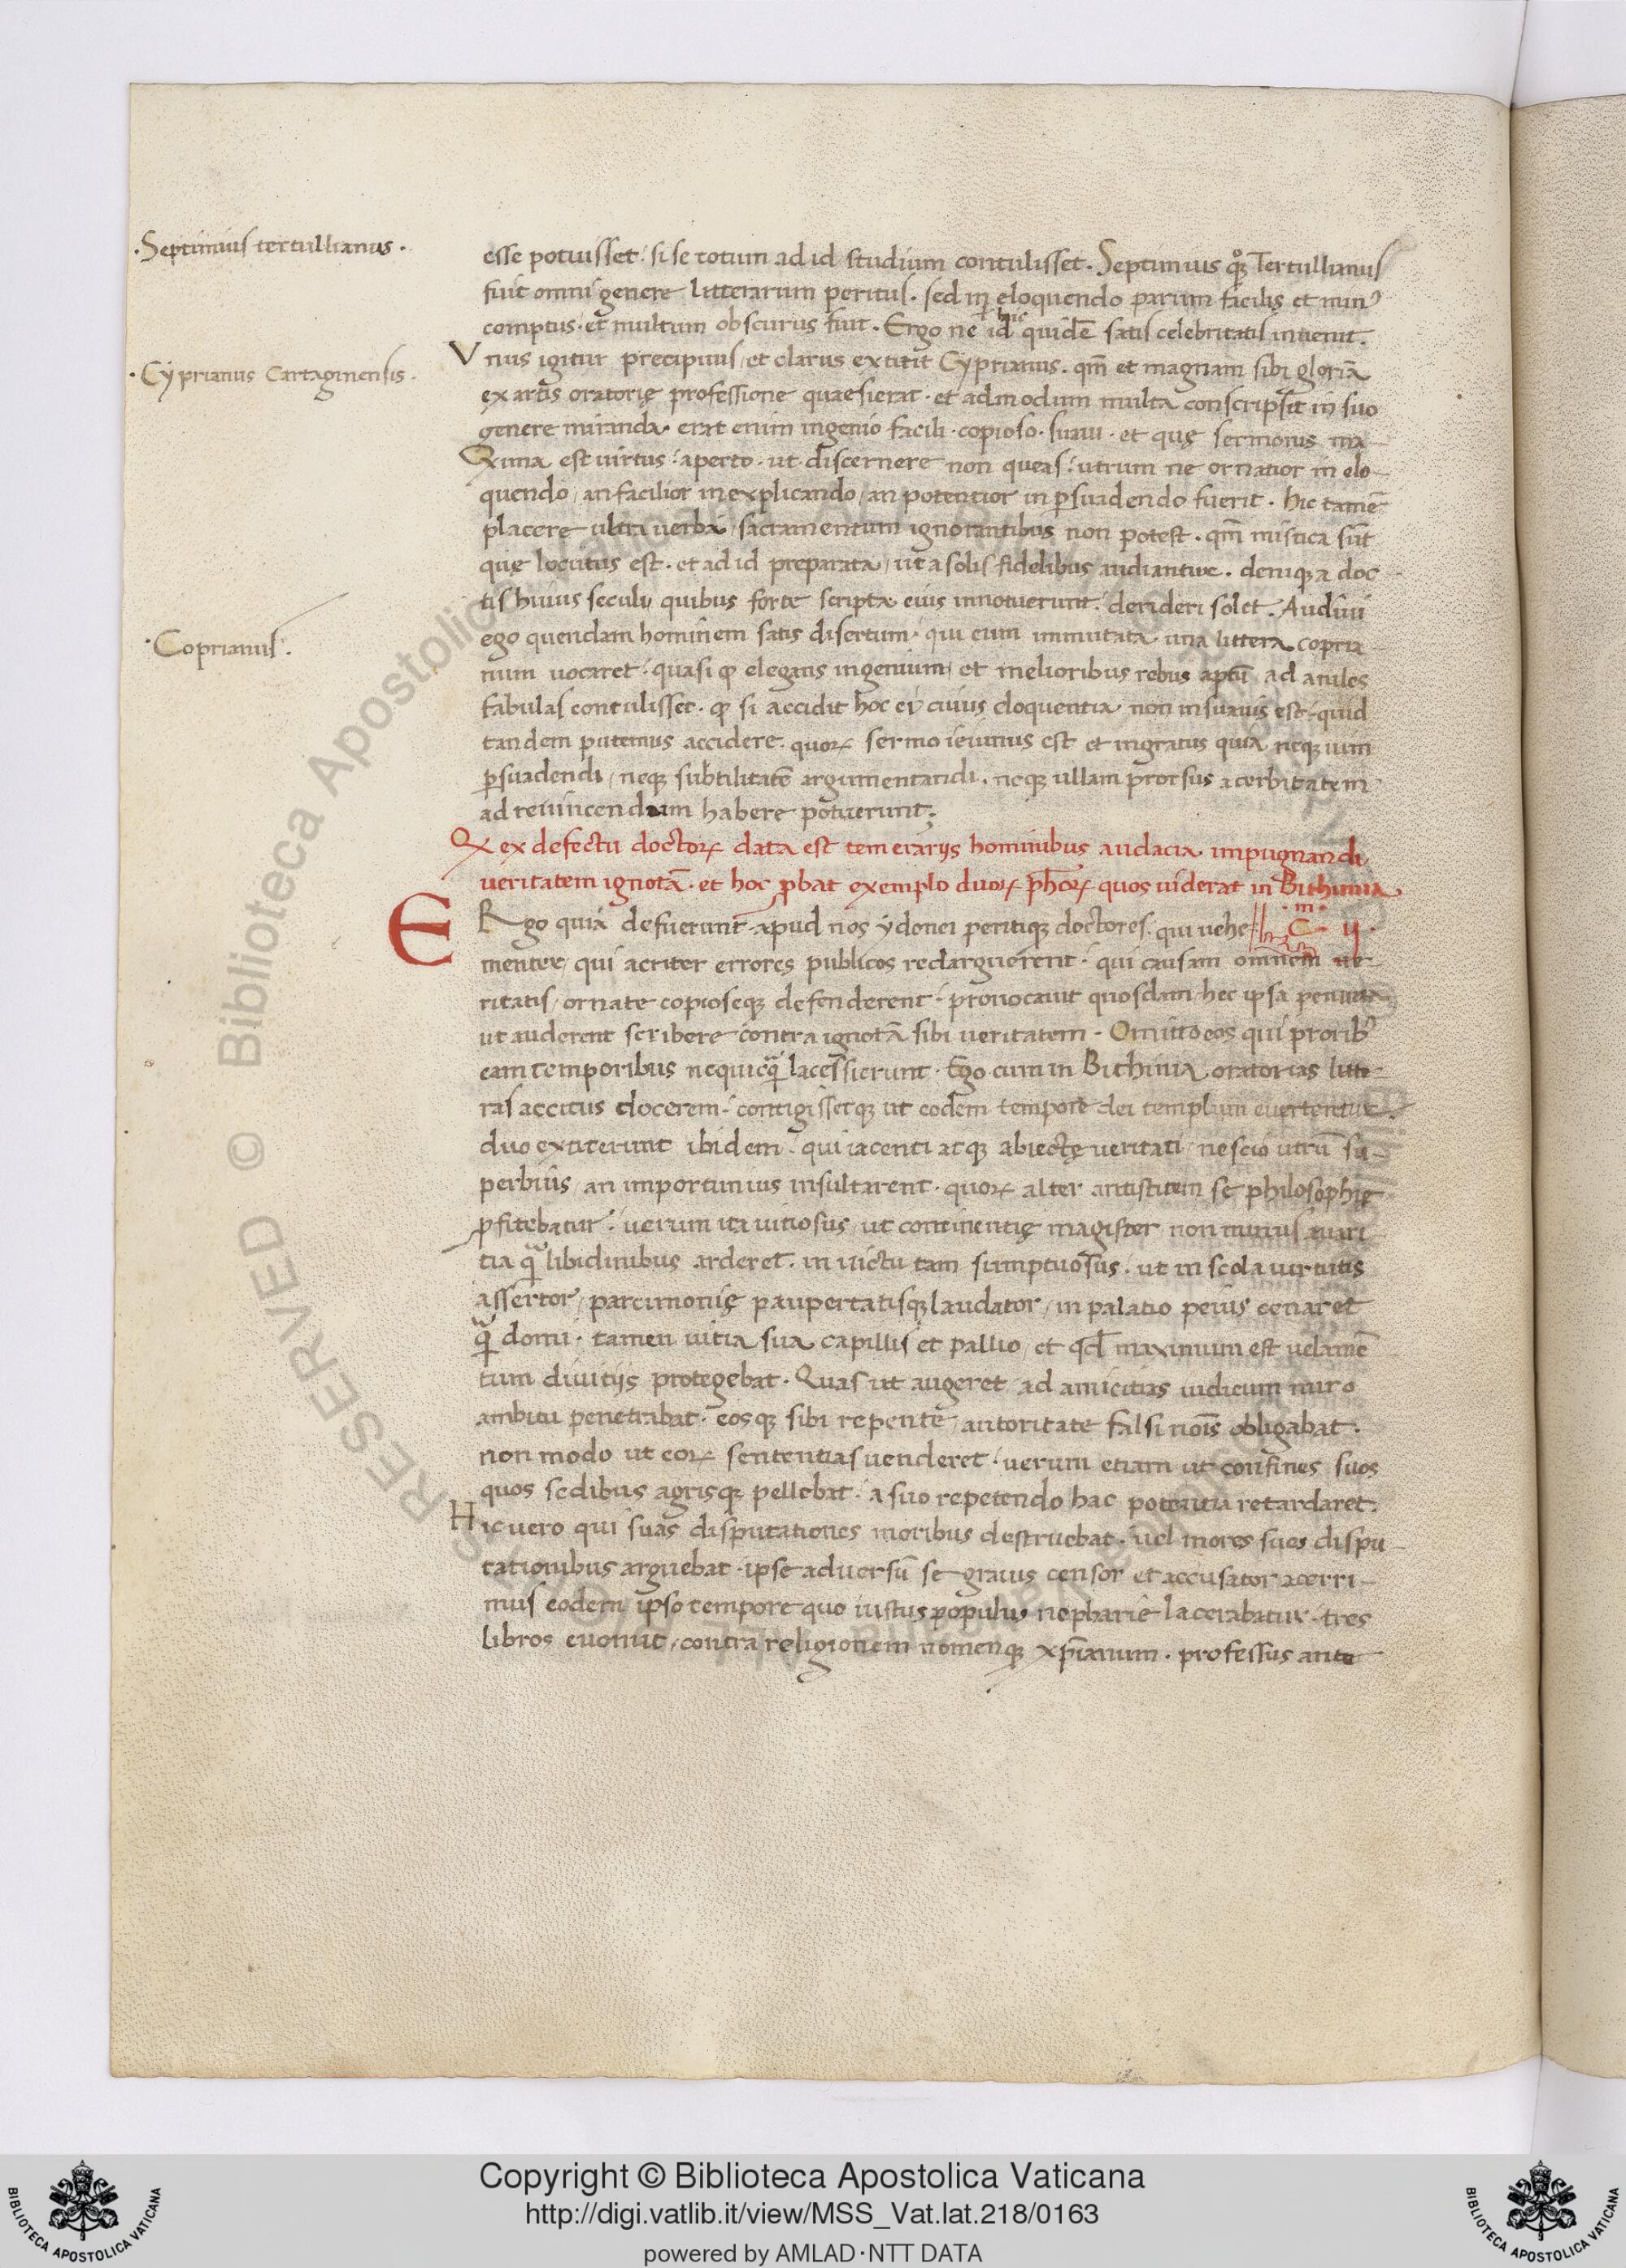 ·Septimius tertullianus·
esse potuisset / si se totum ad id studium contulisset. Septimius qq̃ Tertullianus
fuit omni genere litterarum peritus. sed in eloquendo parum facilis et min᾿
comptus. et multum obscurus fuit. Ergo ne hic id quidẽ satis celebritatis inuenit.
·Cyprianus Cartaginensis·
Vnus igitur precipuus / et clarus extitit Cyprianus. qm̃ et magnam sibi gloriã
ex artis oratorię professione quaesierat. et admodum multa conscripsit in suo
genere miranda. erat enim ingenio facili. copioso. suaui. et quę sermonis ma-
xima est uirtus / aperto. ut discernere non queas / utrum ne ornatior in elo-
quendo / an facilior in explicando / an potentior in ꝑsuadendo fuerit. hic tamẽ
placere ultra uerba / sacramentum ignorantibus non potest. qm̃ mistica sũt
quę locutus est. et ad id preparata / ut a solis fidelibus audiantur. deniqꝫ a doc-
tis huius seculi quibus forte scripta eius innotuerunt / derideri solet. Audiui
·Coprianus·
ego quendam hominem satis disertum. qui eum immutata una littera copria-
num uocaret. quasi ꝙ elegans ingenium / et melioribus rebus aptũ ad aniles
fabulas contulisset. ꝙ si accidit hoc ei cuius eloquentia non insuauis est / quid
tandem putemus accidere quoꝝ sermo ieiunus est et ingratus quia neqꝫ uim
ꝑsuadendi / neqꝫ subtilitatẽ argumentandi. neqꝫ ullam prorsus acerbitatem
ad reuincendum habere potuerunt;
Qx ex defectu doctoꝝ data est temerarijs hominibus audacia impugnandi
ueritatem ignotã. et hoc ꝓbat exemplo duoꝝ ph̃oꝝ quos uiderat in Bithinia
·m·
C· ij·
ERgo quia defuerunt apud nos ydonei peritiqꝫ doctores. qui uehe-
menter / qui acriter errores publicos redarguerent. qui causam omnem ue-
ritatis / ornate copioseqꝫ defenderent. prouocauit quosdam hec ipsa penuria
ut auderent scribere contra ignotã sibi ueritatem. Omitto eos qui priorib᾿
eam temporibus nequicq̃ lacessierunt. Ego cum in Bithinia oratorias litte-
ras accitus docerem. contigissetqꝫ ut eodem tempore dei templum euerteretur
duo extiterunt ibidem. qui iacenti atqꝫ abiectę ueritati / nescio utrũ su-
perbius / an importunius insultarent. quoꝝ alter antistitem se philosophię
ꝓfitebatur. uerum ita uitiosus / ut continentię magister non minus auari-
tia q̃ libidinibus arderet. in uictu tam sumptuosus. ut in scola uirtutis
assertor / parcimonię paupertatisqꝫ laudator / in palatio peius cenaret
q̃ domi. tamen uitia sua capillis et pallio / et qđ maximum est uelamẽ
tum diuitijs protegebat. Quas ut augeret / ad amicitias iudicum miro
ambitu penetrabat. eosqꝫ sibi repente / autoritate falsi nõis obligabat.
non modo ut eoꝝ sententias uenderet. uerum etiam ut confines suos
quos sedibus agrisqꝫ pellebat. a suo repetendo hac potentia retardaret.
Hic uero qui suas disputationes moribus destruebat. uel mores suos dispu-
tationibus arguebat. ipse aduersũ se grauis censor et accusator acerri-
mus eodem ipso tempore quo iustus populus nepharie lacerabatur. tres
libros euomit / contra religionem nomenqꝫ xp̃ianum. professus ante
RESERVED © Biblioteca Apostolica Vaticana
Copyright © Biblioteca Apostolica Vaticana
http://digi.vatlib.it/view/MSS_Vat.lat.218/0163
powered by AMLAD·NTT DATA
BIBLIOTECA APOSTOLICA VATICANA
BIBLIOTECA APOSTOLICA VATICANA